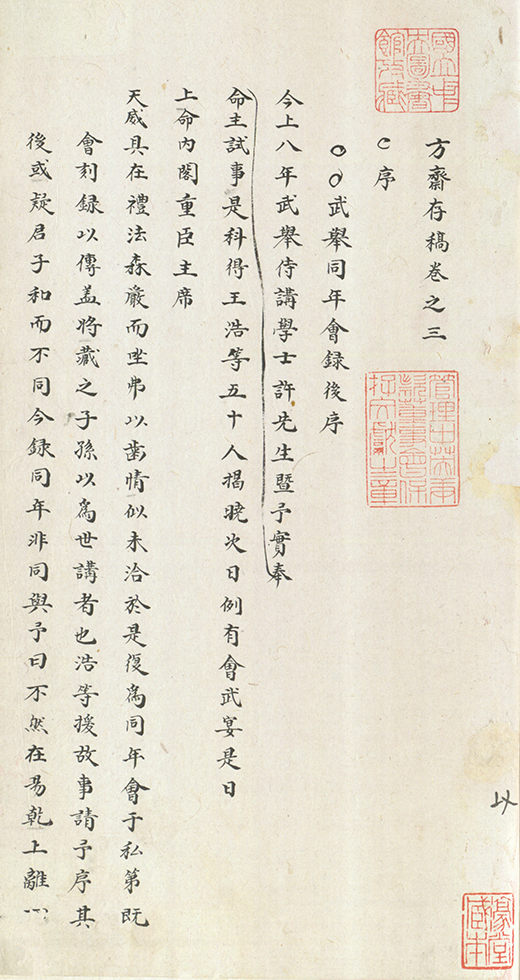 國立中央圖書館收藏
方齋存稿卷之三
管理中英庚款董事會保存文獻之章
以
序
武舉同年會録後序
今上八年武舉侍講學士許先生暨予實奉
命主試事是科得王浩等五十人揭曉次日例有會武宴是日
上命內閣重臣主席
天威具在禮法森嚴而坐弗以齒情似未洽於是復為同年會于私第既
會刻録以傳盖將藏之子孫以為世講者也浩等援故事請予序其
後或疑君子和而不同今録同年非同與予曰不然在易乾上離